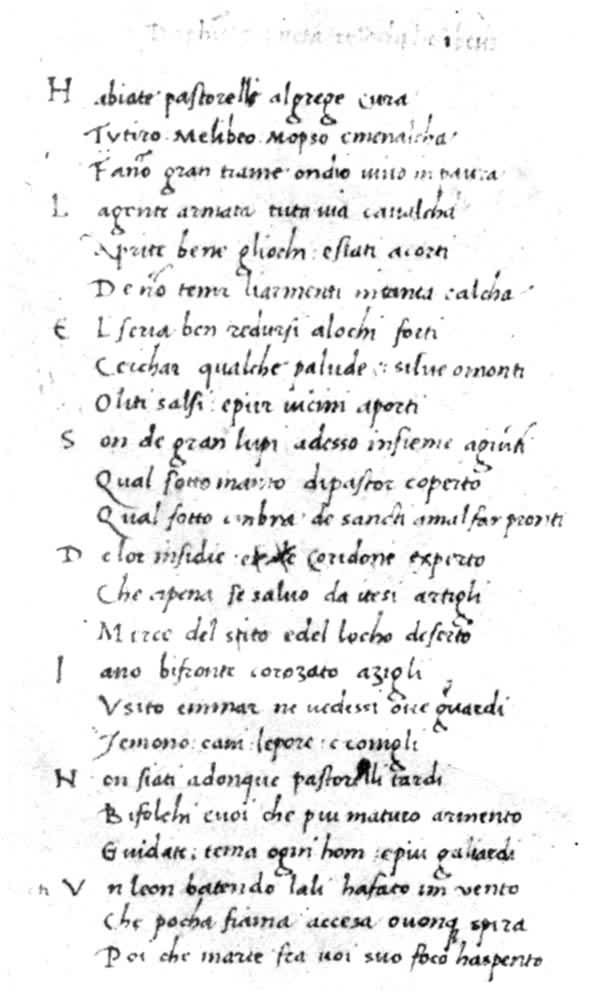 Habiate pastorelli algrege cura
Tytiro Melibeo Mopso emenalcha
Fano gran trame ondio vivo in paura
Lagente armata tuta via cavalcha
Aprite bene gliochi : estati acorti
De no temer liarmenti in tanta calcha
El seria ben redursi alochi forti
Cerchar qualche palude : silve omonti
Oliti salsi : epiur vicini aporti
Son de gran lupi adesso insieme agiunti
Qual sotto manto dipastor coperto
Qual sotto umbra de sancti amalfar pronti
De lor insidie Coridone experto
Che apena se salvo da tesi artigli
Merce del sito edel locho deserto
Iano bifronte corozato azigli
Usito ne vedessi que guardi
Temono : cani : lepore : e conigli
Non siati adonque pastorelli tardi
Bifolchi evoi che piu maturo armento
Guidate : tema ogni hom : epiu galiardi
Un leon batendo lali hafato un vento
Che pocha fiama accesa ovonq spira
Poi che marte fra voi suo foco haspento